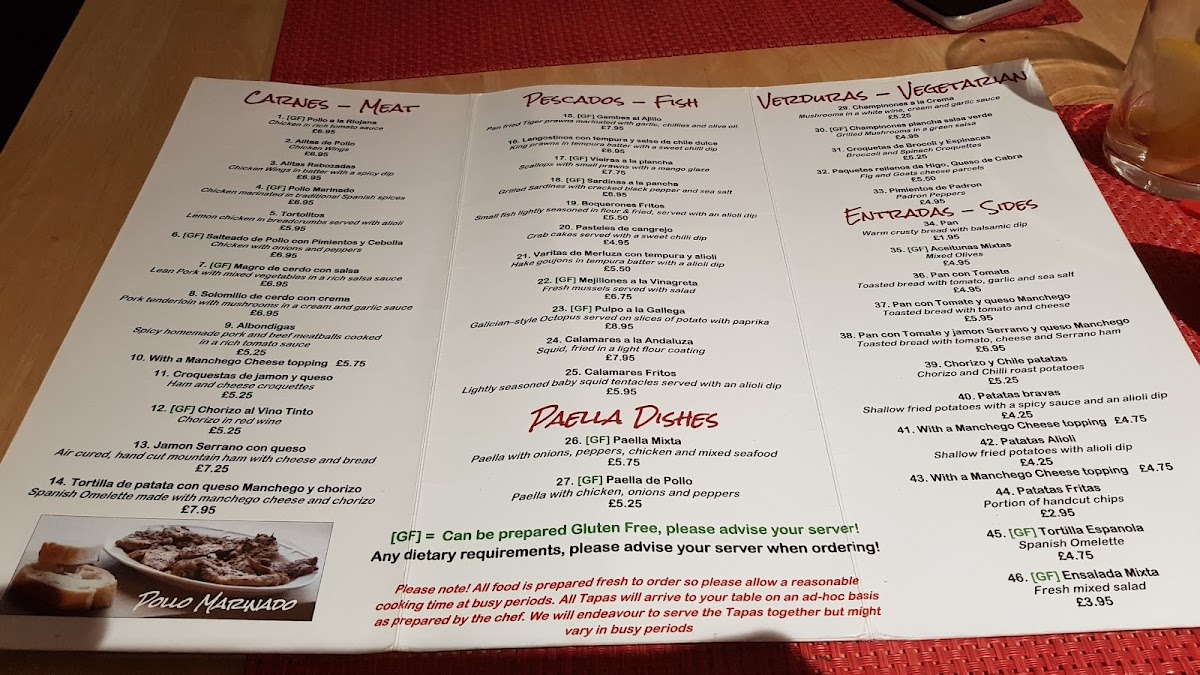 CARNES – MEAT
1. [GF] Pollo a la Riojana
Chicken in rich tomato sauce
£6.95
2. Alitas de Pollo
Chicken Wings
£6.95
3. Alitas Rebozadas
Chicken Wings in batter with a spicy dip
£6.95
4. [GF] Pollo Marinado
Chicken marinated in traditional Spanish spices
£6.95
5. Tortolitos
Lemon chicken in breadcrumbs served with alioli
£5.95
6. [GF] Salteado de Pollo con Pimientos y Cebolla
Chicken with onions and peppers
£6.95
7. [GF] Magro de cerdo con salsa
Lean Pork with mixed vegetables in a rich salsa sauce
£6.95
8. Solomillo de cerdo con crema
Pork tenderloin with mushrooms in a cream and garlic sauce
£6.95
9. Albondigas
Spicy homemade pork and beef meatballs cooked
in a rich tomato sauce
£5.25
10. With a Manchego Cheese topping £5.75
11. Croquestas de jamon y queso
Ham and cheese croquettes
£5.25
12. [GF] Chorizo al Vino Tinto
Chorizo in red wine
£5.25
13. Jamon Serrano con queso
Air cured, hand cut mountain ham with cheese and bread
£7.25
14. Tortilla de patata con queso Manchego y chorizo
Spanish Omelette made with manchego cheese and chorizo
£7.95
POLLO MARINADO
PESCADOS – FISH
15. [GF] Gambas al Ajillo
Pan fried Tiger prawns marinated with garlic, chillies and olive oil.
£7.95
16. Langostinos con tempura y salsa de chile dulce
King prawns in tempura batter with a sweet chilli dip
£6.95
17. [GF] Vieiras a la plancha
Scallops with small prawns with a mango glaze
£7.75
18. [GF] Sardinas a la pancha
Grilled Sardines with cracked black pepper and sea salt
£6.95
19. Boquerones Fritos
Small fish lightly seasoned in flour & fried, served with an alioli dip
£5.50
20. Pasteles de cangrejo
Crab cakes served with a sweet chilli dip
£4.95
21. Varitas de Merluza con tempura y alioli
Hake goujons in tempura batter with a alioli dip
£5.50
22. [GF] Mejillones a la Vinagreta
Fresh mussels served with salad
£6.75
23. [GF] Pulpo a la Gallega
Galician-style Octopus served on slices of potato with paprika
£8.95
24. Calamares a la Andaluza
Squid, fried in a light flour coating
£7.95
25. Calamares Fritos
Lightly seasoned baby squid tentacles served with an alioli dip
£5.95
PAELLA DISHES
26. [GF] Paella Mixta
Paella with onions, peppers, chicken and mixed seafood
£5.75
27. [GF] Paella de Pollo
Paella with chicken, onions and peppers
£5.25
[GF] = Can be prepared Gluten Free, please advise your server!
Any dietary requirements, please advise your server when ordering!
Please note! All food is prepared fresh to order so please allow a reasonable
cooking time at busy periods. All Tapas will arrive to your table on an ad-hoc basis
as prepared by the chef. We will endeavour to serve the Tapas together but might
vary in busy periods
VERDURAS – VEGETARIAN
29. Champinones a la Creme
Mushrooms in a white wine, cream and garlic sauce
£5.25
30. [GF] Champinones plancha salsa verde
Grilled Mushrooms in a green salsa
£4.95
31. Croquetas de Brocoli y Espinacas
Broccoli and Spinach Croquettes
£5.25
32. Paquetes rellenos de Higo, Queso de Cabra
Fig and Goats cheese parcels
£5.50
33. Pimientos de Padron
Padron Peppers
£4.95
ENTRADAS – SIDES
34. Pan
Warm crusty bread with balsamic dip
£1.95
35. [GF] Aceitunas Mixtas
Mixed Olives
£4.95
36. Pan con Tomate
Toasted bread with tomato, garlic and sea salt
£4.95
37. Pan con Tomate y queso Manchego
Toasted bread with tomato and cheese
£5.95
38. Pan con Tomate y jamon Serrano y queso Manchego
Toasted bread with tomato, cheese and Serrano ham
£6.95
39. Chorizo y Chile patatas
Chorizo and Chilli roast potatoes
£5.25
40. Patatas bravas
Shallow fried potatoes with a spicy sauce and an alioli dip
£4.25
41. With a Manchego Cheese topping £4.75
42. Patatas Alioli
Shallow fried potatoes with alioli dip
£4.25
43. With a Manchego Cheese topping £4.75
44. Patatas Fritas
Portion of handcut chips
£2.95
45. [GF] Tortilla Espanola
Spanish Omelette
£4.75
46. [GF] Ensalada Mixta
Fresh mixed salad
£3.95